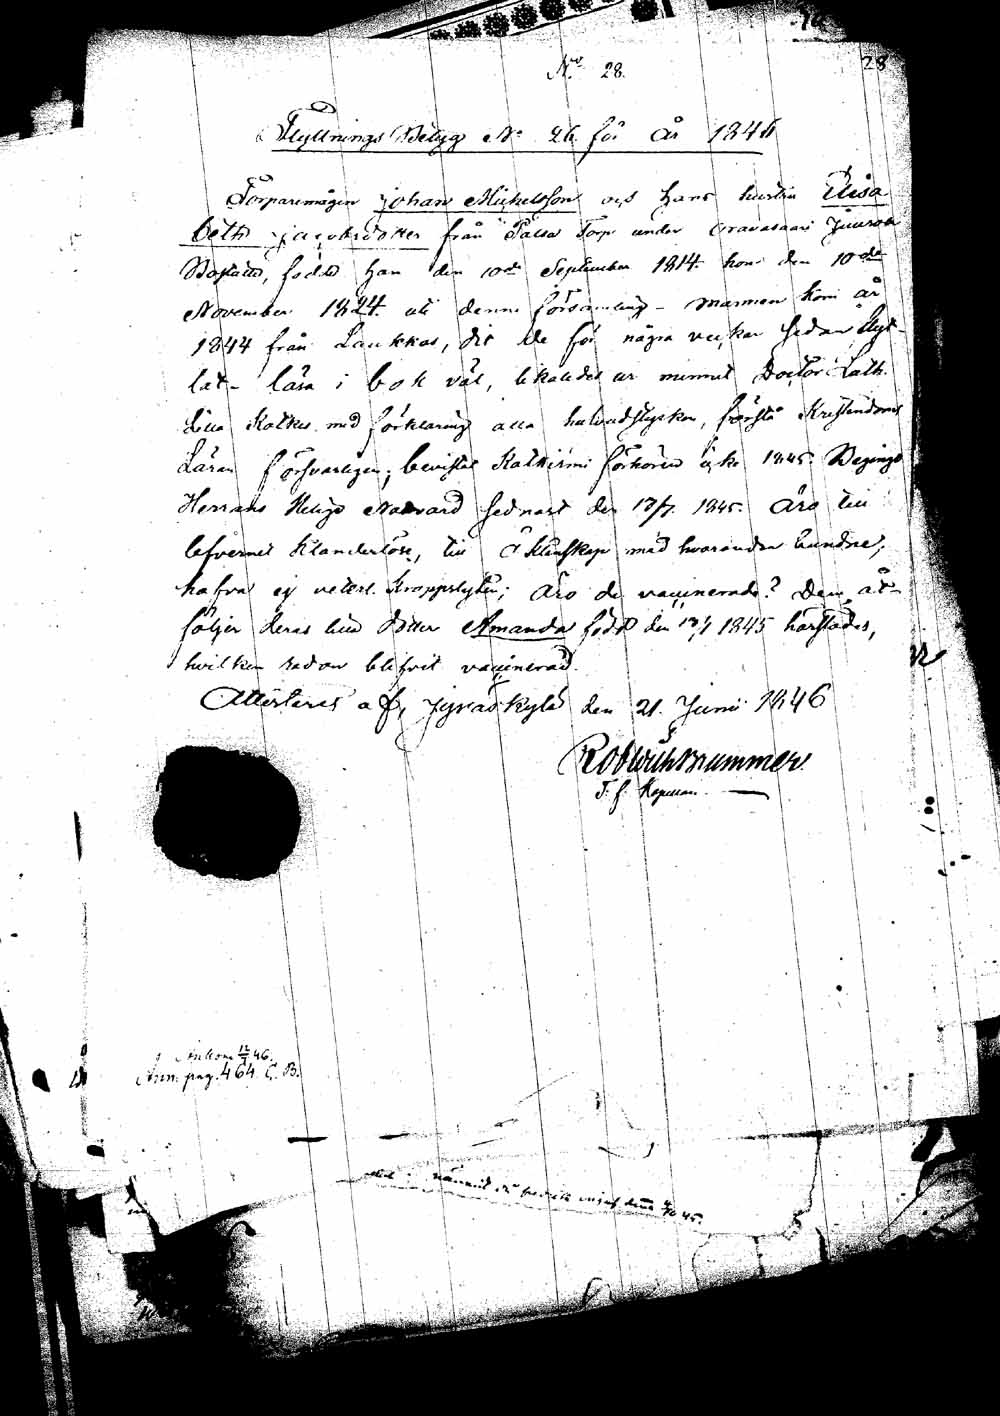 No 28.
28
Flyttnings Betyg No 26 för år 1846
Torparemågen Johan Michelsson och hans hustru Elisa
beth Jacobsdotter från Palsa Torp under Oravasaari
Boställe, född han den 10de September 1814. hon den 10de
November 1824. uti denna församling - mannen kom år
1844 från Laukkas, dit de för några veckor sedan flyt-
tat - läsa i bok väl, likaledes ur minnet Doctor Luth.
Lilla Katkes med förklaring alla hufvudstycken, förstå Kristendoms
Läran försvarligen; bevistat Katkismi förhören 1845. Begingo
Herrans Heliga Nattvard sednast den 13/7. 1845. Äro till
lefvernet klanderlöse, till Äktenskap med hvarandra bundne;
hafva ej veterl. kroppslyten; Äro de vaccinerade? Dem åt-
följer deras lilla dotter Amanda född den 1845 härstädes,
hvilken redan blifvit vaccinerad.
Attesteras af, Jyväskylä den 21. Junii 1846
Rob Wilh Brummer.
T. f. Kapellan.
Ankom 12/7 46.
Ann. pag. 464. C. B.